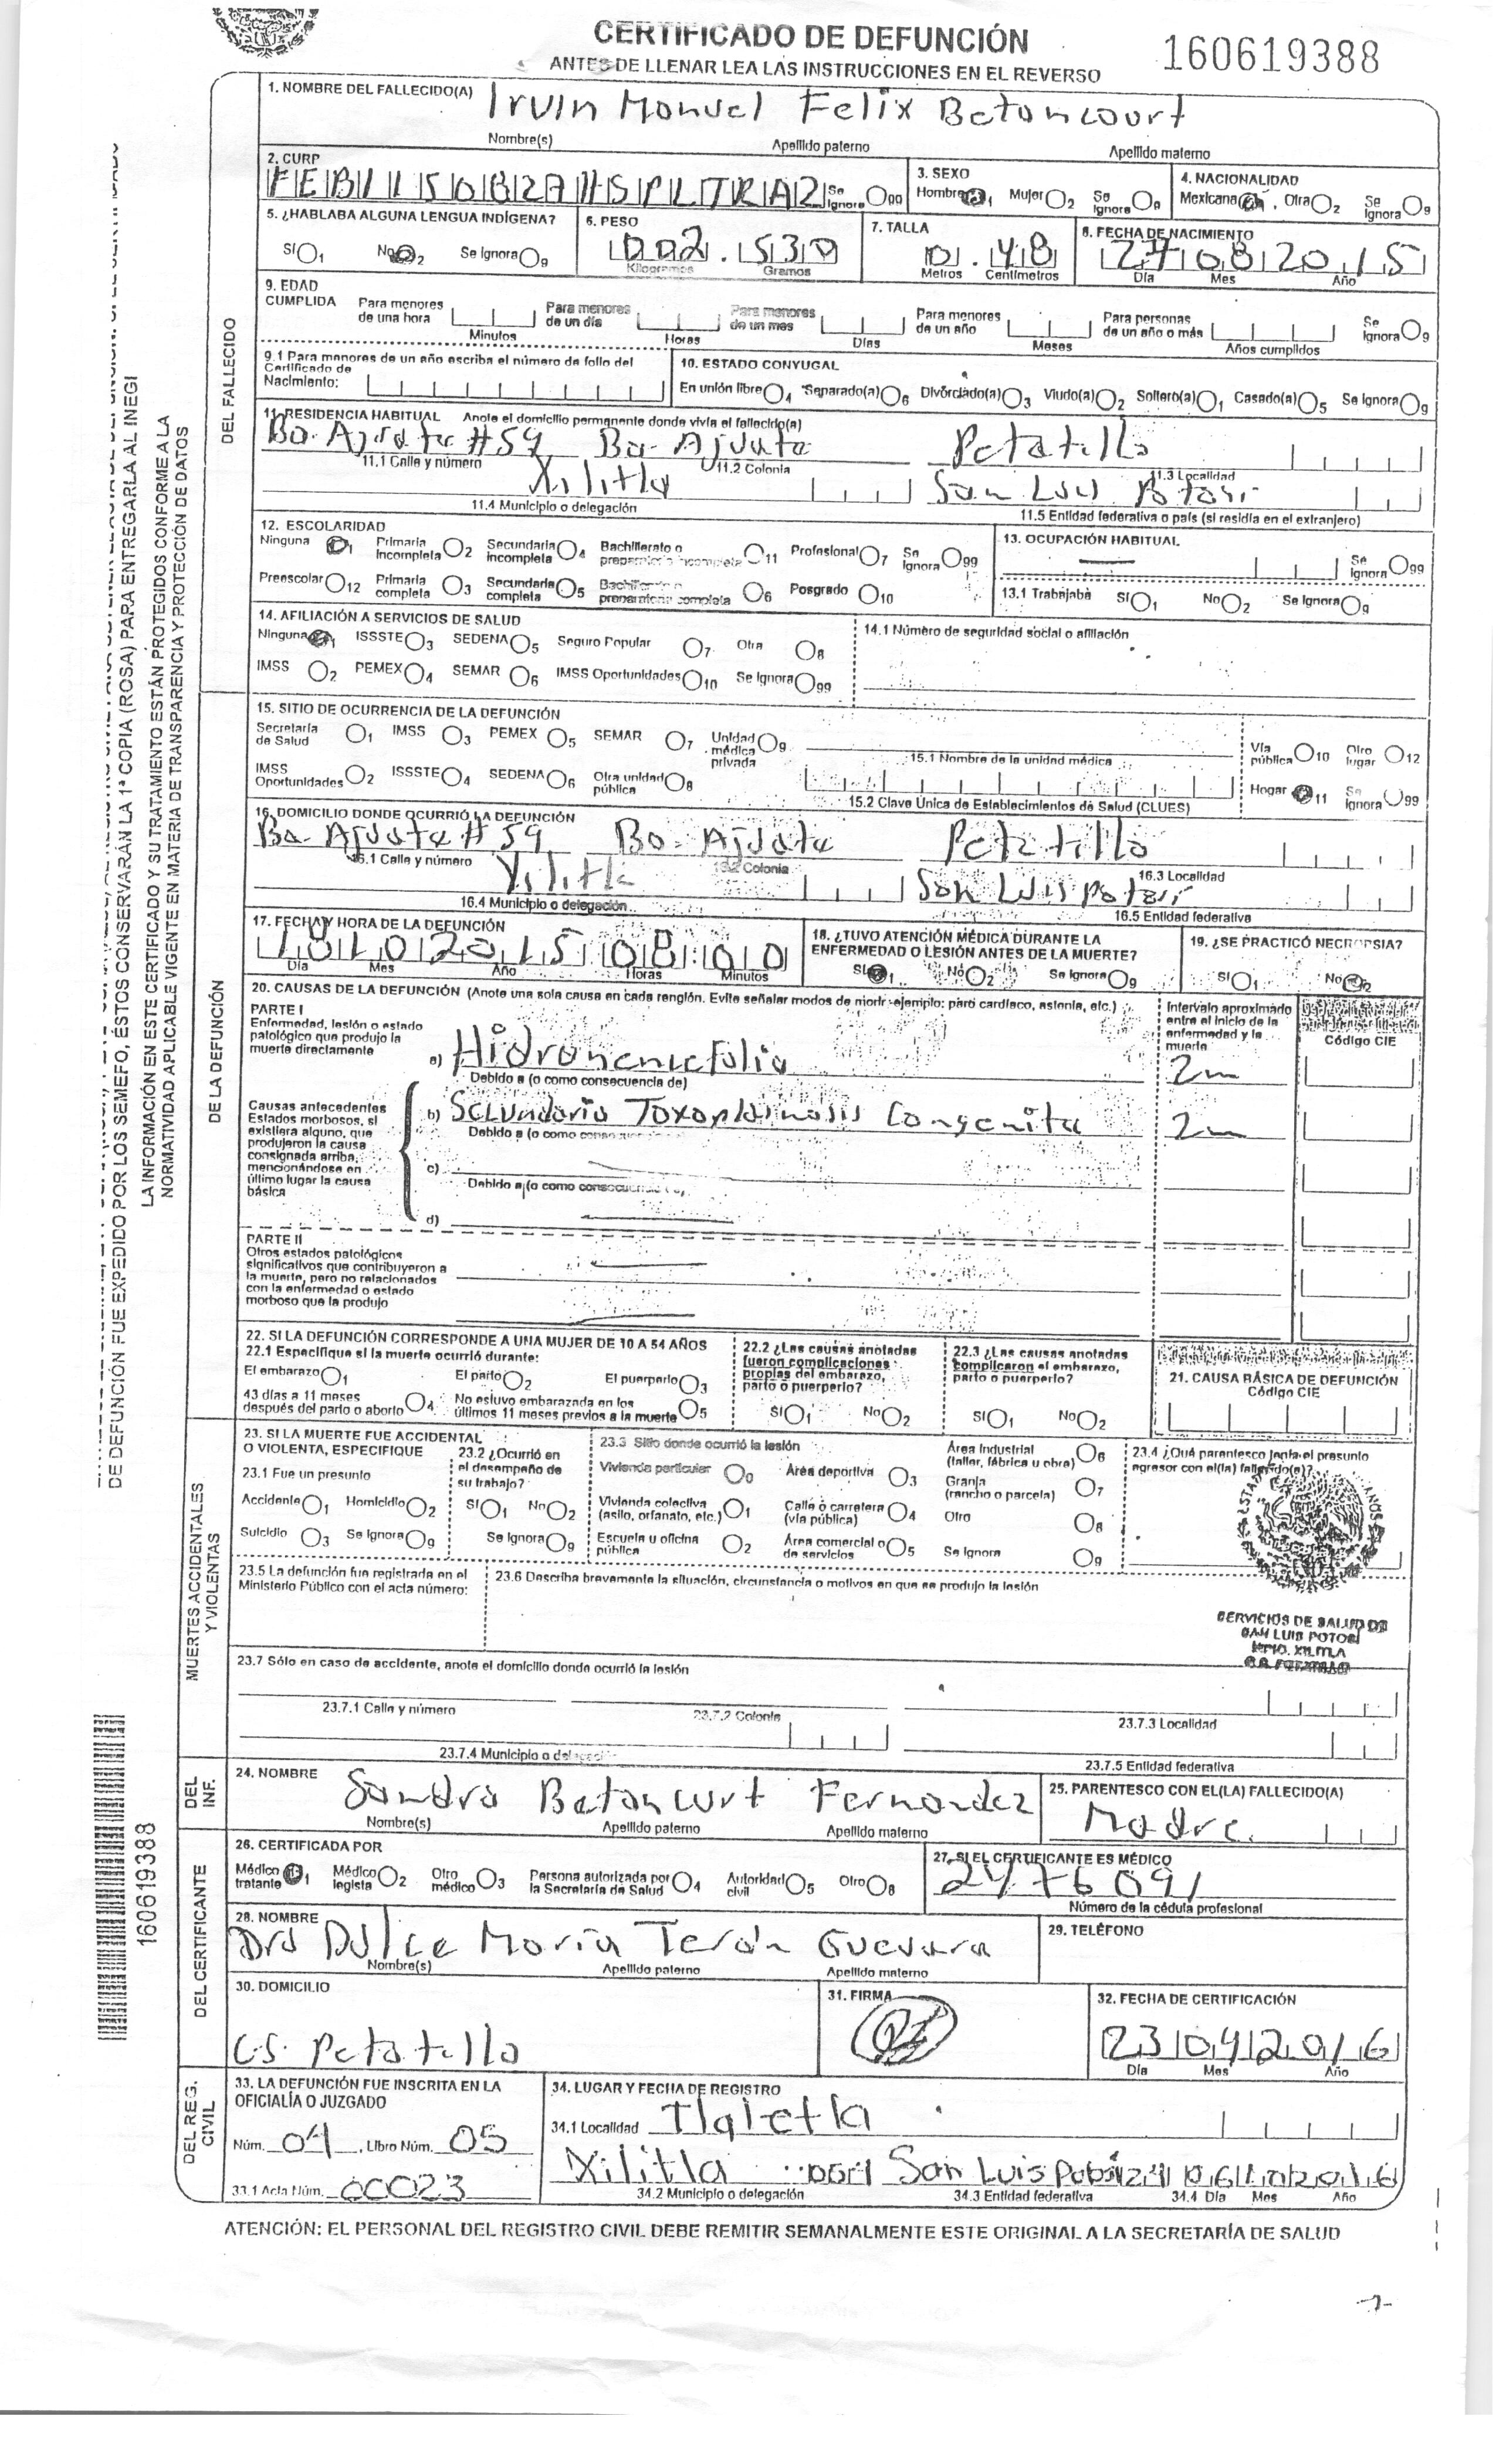 CERTIFICADO DE DEFUNCIÓN
160619388
ANTES DE LLENAR LEA LAS INSTRUCCIONES EN EL REVERSO
DEL FALLECIDO
1. NOMBRE DEL FALLECIDO(A) Irvin Manuel Felix Betancourt
Nombre(s) Apellido paterno Apellido materno
2. CURP Se Ignora 99
3. SEXO Hombre 1 Mujer 2 Se Ignora 9
4. NACIONALIDAD Mexicana 1 Otra 2 Se Ignora 9
5. ¿HABLABA ALGUNA LENGUA INDÍGENA? Sí 1 No 2 Se Ignora 9
6. PESO 002.530 Kilogramos Gramos
7. TALLA 0.48 Metros Centímetros
8. FECHA DE NACIMIENTO 27 08 2015 Día Mes Año
9. EDAD CUMPLIDA
Para menores de una hora Minutos
Para menores de un día Horas
Para menores de un mes Días
Para menores de un año Meses
Para personas de un año o más Años cumplidos
Se Ignora 9
9.1 Para menores de un año escriba el número de folio del Certificado de Nacimiento:
10. ESTADO CONYUGAL
En unión libre 4 Separado(a) 6 Divorciado(a) 3 Viudo(a) 2 Soltero(a) 1 Casado(a) 5 Se Ignora 9
11. RESIDENCIA HABITUAL Anote el domicilio permanente donde vivía el fallecido(a)
Bo. Ajuate #59 Bo. Ajuate Petatillo
11.1 Calle y número 11.2 Colonia 11.3 Localidad
Xilitla San Luis Potosí
11.4 Municipio o delegación 11.5 Entidad federativa o país (si residía en el extranjero)
12. ESCOLARIDAD
Ninguna 1 Primaria incompleta 2 Secundaria incompleta 4 Bachillerato o preparatoria incompleta 11 Profesional 7 Se Ignora 99
Preescolar 12 Primaria completa 3 Secundaria completa 5 Bachillerato o preparatoria completa 6 Posgrado 10
13. OCUPACIÓN HABITUAL Se Ignora 99
13.1 Trabajaba Sí 1 No 2 Se Ignora 9
14. AFILIACIÓN A SERVICIOS DE SALUD
Ninguna 1 ISSSTE 3 SEDENA 5 Seguro Popular 7 Otra 8
IMSS 2 PEMEX 4 SEMAR 6 IMSS Oportunidades 10 Se Ignora 99
14.1 Número de seguridad social o afiliación
DE LA DEFUNCIÓN
15. SITIO DE OCURRENCIA DE LA DEFUNCIÓN
Secretaría de Salud 1 IMSS 3 PEMEX 5 SEMAR 7 Unidad médica privada 9
15.1 Nombre de la unidad médica
Vía pública 10 Otro lugar 12
IMSS Oportunidades 2 ISSSTE 4 SEDENA 6 Otra unidad pública 8
15.2 Clave Única de Establecimientos de Salud (CLUES)
Hogar 11 Se Ignora 99
16. DOMICILIO DONDE OCURRIÓ LA DEFUNCIÓN
Bo. Ajuate #59 Bo. Ajuate Petatillo
16.1 Calle y número 16.2 Colonia 16.3 Localidad
Xilitla San Luis potosí
16.4 Municipio o delegación 16.5 Entidad federativa
17. FECHA Y HORA DE LA DEFUNCIÓN
18 10 2015 08:00
Día Mes Año Horas Minutos
18. ¿TUVO ATENCIÓN MÉDICA DURANTE LA ENFERMEDAD O LESIÓN ANTES DE LA MUERTE?
Sí 1 No 2 Se Ignora 9
19. ¿SE PRACTICÓ NECROPSIA?
Sí 1 No 2
20. CAUSAS DE LA DEFUNCIÓN (Anote una sola causa en cada renglón. Evite señalar modos de morir ejemplo: paro cardíaco, astenia, etc.)
Intervalo aproximado entre el inicio de la enfermedad y la muerte
Código CIE
PARTE I
Enfermedad, lesión o estado patológico que produjo la muerte directamente
a) 2m
Debido a (o como consecuencia de)
Causas antecedentes
Estados morbosos, si existiera alguno, que produjeron la causa consignada arriba, mencionándose en último lugar la causa básica
b) Secundario Toxoplasmosis Congenita 2m
Debido a (o como consecuencia de)
c)
Debido a (o como consecuencia de)
d)
PARTE II
Otros estados patológicos significativos que contribuyeron a la muerte, pero no relacionados con la enfermedad o estado morboso que la produjo
22. SI LA DEFUNCIÓN CORRESPONDE A UNA MUJER DE 10 A 54 AÑOS
22.1 Especifique si la muerte ocurrió durante:
El embarazo 1 El parto 2 El puerperio 3
43 días a 11 meses después del parto o aborto 4 No estuvo embarazada en los últimos 11 meses previos a la muerte 5
22.2 ¿Las causas anotadas fueron complicaciones propias del embarazo, parto o puerperio?
Sí 1 No 2
22.3 ¿Las causas anotadas complicaron el embarazo, parto o puerperio?
Sí 1 No 2
21. CAUSA BÁSICA DE DEFUNCIÓN
Código CIE
MUERTES ACCIDENTALES Y VIOLENTAS
23. SI LA MUERTE FUE ACCIDENTAL O VIOLENTA, ESPECIFIQUE
23.1 Fue un presunto
Accidente 1 Homicidio 2
Suicidio 3 Se Ignora 9
23.2 ¿Ocurrió en el desempeño de su trabajo?
Sí 1 No 2
Se Ignora 9
23.3 Sitio donde ocurrió la lesión
Vivienda particular 0 Área deportiva 3 Área Industrial (taller, fábrica u obra) 6
Granja (rancho o parcela) 7
Vivienda colectiva (asilo, orfanato, etc.) 1 Calle o carretera (vía pública) 4 Otro 8
Escuela u oficina pública 2 Área comercial o de servicios 5 Se Ignora 9
23.4 ¿Qué parentesco tenía el presunto agresor con el(la) fallecido(a)?
23.5 La defunción fue registrada en el Ministerio Público con el acta número:
23.6 Describa brevemente la situación, circunstancia o motivos en que se produjo la lesión
SERVICIOS DE SALUD DE
SAN LUIS POTOSI
MPIO. XILITLA
23.7 Sólo en caso de accidente, anote el domicilio donde ocurrió la lesión
23.7.1 Calle y número 23.7.2 Colonia 23.7.3 Localidad
23.7.4 Municipio o delegación 23.7.5 Entidad federativa
DEL INF.
24. NOMBRE Sandra Betancurt Fernandez
Nombre(s) Apellido paterno Apellido materno
25. PARENTESCO CON EL(LA) FALLECIDO(A)
Madre
DEL CERTIFICANTE
26. CERTIFICADA POR
Médico tratante 1 Médico legista 2 Otro médico 3 Persona autorizada por la Secretaría de Salud 4 Autoridad civil 5 Otro 8
27. SI EL CERTIFICANTE ES MÉDICO
2476091
Número de la cédula profesional
28. NOMBRE
Dra Dulce María Terán Guevara
Nombre(s) Apellido paterno Apellido materno
29. TELÉFONO
30. DOMICILIO
C.S. Petatillo
31. FIRMA
32. FECHA DE CERTIFICACIÓN
23 04 2016
Día Mes Año
DEL REG. CIVIL
33. LA DEFUNCIÓN FUE INSCRITA EN LA OFICIALÍA O JUZGADO
Núm. 04, Libro Núm. 05
33.1 Acta Núm. 00023
34. LUGAR Y FECHA DE REGISTRO
34.1 Localidad Tlaletla
Xilitla 054 San Luis Potosí 24
34.2 Municipio o delegación 34.3 Entidad federativa 34.4 Día Mes Año
ATENCIÓN: EL PERSONAL DEL REGISTRO CIVIL DEBE REMITIR SEMANALMENTE ESTE ORIGINAL A LA SECRETARÍA DE SALUD
DE DEFUNCIÓN FUE EXPEDIDO POR LOS SEMEFO, ÉSTOS CONSERVARÁN LA 1ª COPIA (ROSA) PARA ENTREGARLA AL INEGI
LA INFORMACIÓN EN ESTE CERTIFICADO Y SU TRATAMIENTO ESTÁN PROTEGIDOS CONFORME A LA
NORMATIVIDAD APLICABLE VIGENTE EN MATERIA DE TRANSPARENCIA Y PROTECCIÓN DE DATOS
160619388